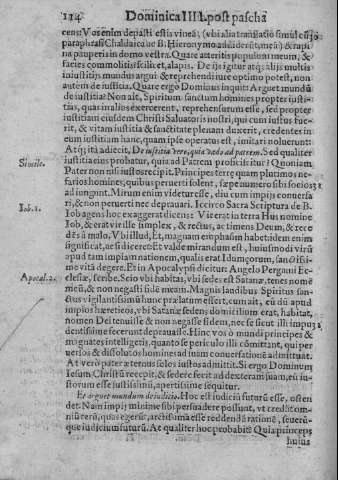 114 Dominica IIII. post pascha
cens: Vos enim depasti estis vineā; (vbi alia trāslatio simul cū
paraphrasi Chaldaica we B. Hieronymo addiderūt, meā) & rapi
na pauperis in domo vestra. Quare atteritis populum meum, &
facies commolitis scilicet, alapis. De ijs igitur atq; alijs multis
iniustitijs mundus argui & reprehendi iure optimo potest, non
autem de iustitia. Quare ergo Dominus inquit: Arguet mundū
de iustitia? Non ait, Spiritum sanctum homines propter iusti-
tias, quas in alios exercerent, reprehensurum esse, sed propter
iustitiam eiusdem Christi Saluatoris nostri, qui cum iustus fue-
rit, & vitam iustitia & sanctitate plenam duxerit, credentes in
eum iustitiam hanc, quam ipse operatus est, imitari noluerunt.
Atq; ita adiecit, De iustitia vero, quia vado ad patrem. Sed qualiter
Simile. iustitia eius probatur, quia ad Patrem proficiscitur? Quoniam
Pater non nisi iustos recipit. Principes terræ quam plurimos ne-
farios homines, quibus peruerti solent, sæpe numero sibi socios
ad iungunt. Mirum enim videtur esse, diu cum impijs conuersa-
ri, & non peruerti nec deprauari. Iccirco Sacra Scriptura de B.
Iob. 1. Iob agens hoc exaggerat dicens: Vir erat in terra Hus nomine
Iob, & erat vir ille simplex, & rectus, ac timens Deum, & rece
dēs à malo. Vbi illud, Et, magnam emphasim habet. idem enim
significat, ac si diceret: Et valde mirandum est, huiusmodi virū
apud tam impiam nationem, qualis erat Idumæorum, sanctissi-
me vitā degere. Et in Apocalypsi dicitur: Angelo Pergami Ec-
Apocal. 2. clesiæ, scribe. Scio vbi habitas, vbi sedes est Satanæ, tenes nomē
meū, & non negasti fidē meam. Magnis laudibus Spiritus san-
ctus vigilantissimū hunc prælatum effert, cum ait, eū dū apud
impios hæreticos, vbi Satanæ sedens domicilium erat, habitat,
nomen Dei tenuisse & non negasse fidem, nec se sicut illi impu-
dentissime fecerunt deprauasse. Hinc vos ò mundi principes &
magnates intelligetis, quanto se periculo illi cōmittant, qui per
uersos & dissolutos homines ad suam conuersationē admittunt.
At vero pater æternus solos iustos admittit. Si ergo Dominum
Iesum Christū recepit, & sedere fecit ad dexteram suam, eū iu-
storum esse iustissimū, apertissime sequitur.
Et arguet mundum de iudicio. Hoc est iudiciū futurū esse, osten
det. Nam impij minime sibi persuadere possunt, vt credāt om-
niū rerū, quas egerūt, arctissimā esse reddendā rationē, seuerū-
que iudicium futurū. At qualiter hoc probabit? Quia princeps
huius